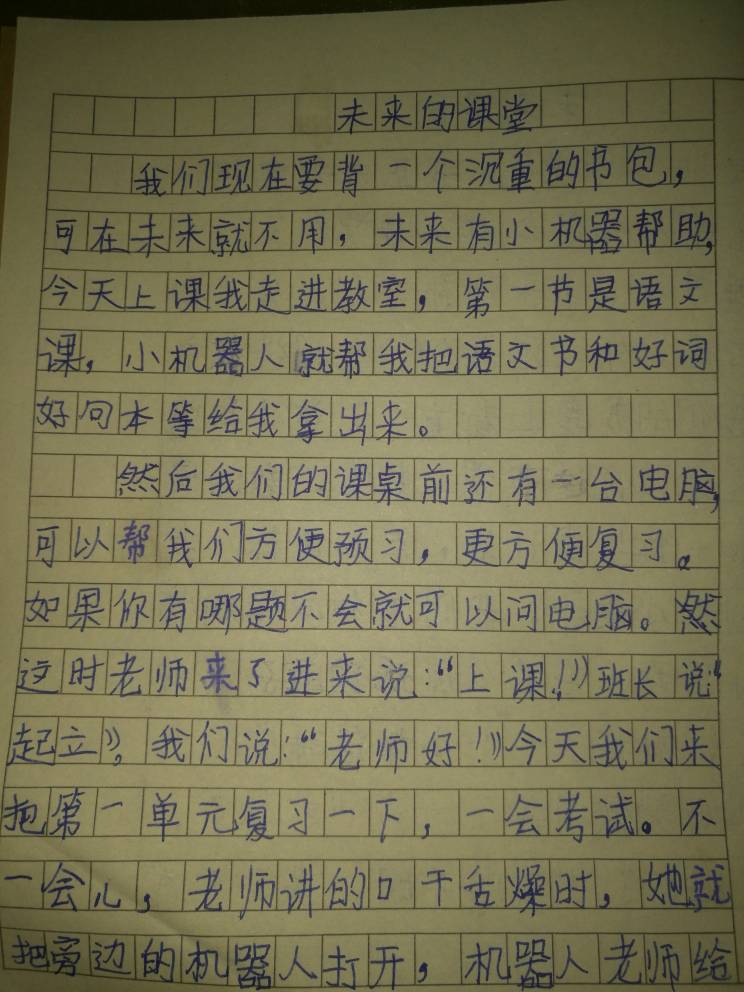 未来的课堂
我们现在要背一个沉重的书包，
可在未来就不用，未来有小机器帮助，
今天上课我走进教室，第一节是语文
课，小机器人就帮我把语文书和好词
好句本等给我拿出来。
然后我们的课桌前还有一台电脑，
可以帮我们方便预习，更方便复习。
如果你有哪题不会就可以问电脑。然
这时老师来了进来说：“上课！”班长说“
起立”，我们说：“老师好！”今天我们来
把第一单元复习一下，一会考试。不
一会儿，老师讲的口干舌燥时，她就
把旁边的机器人打开，机器人老师给